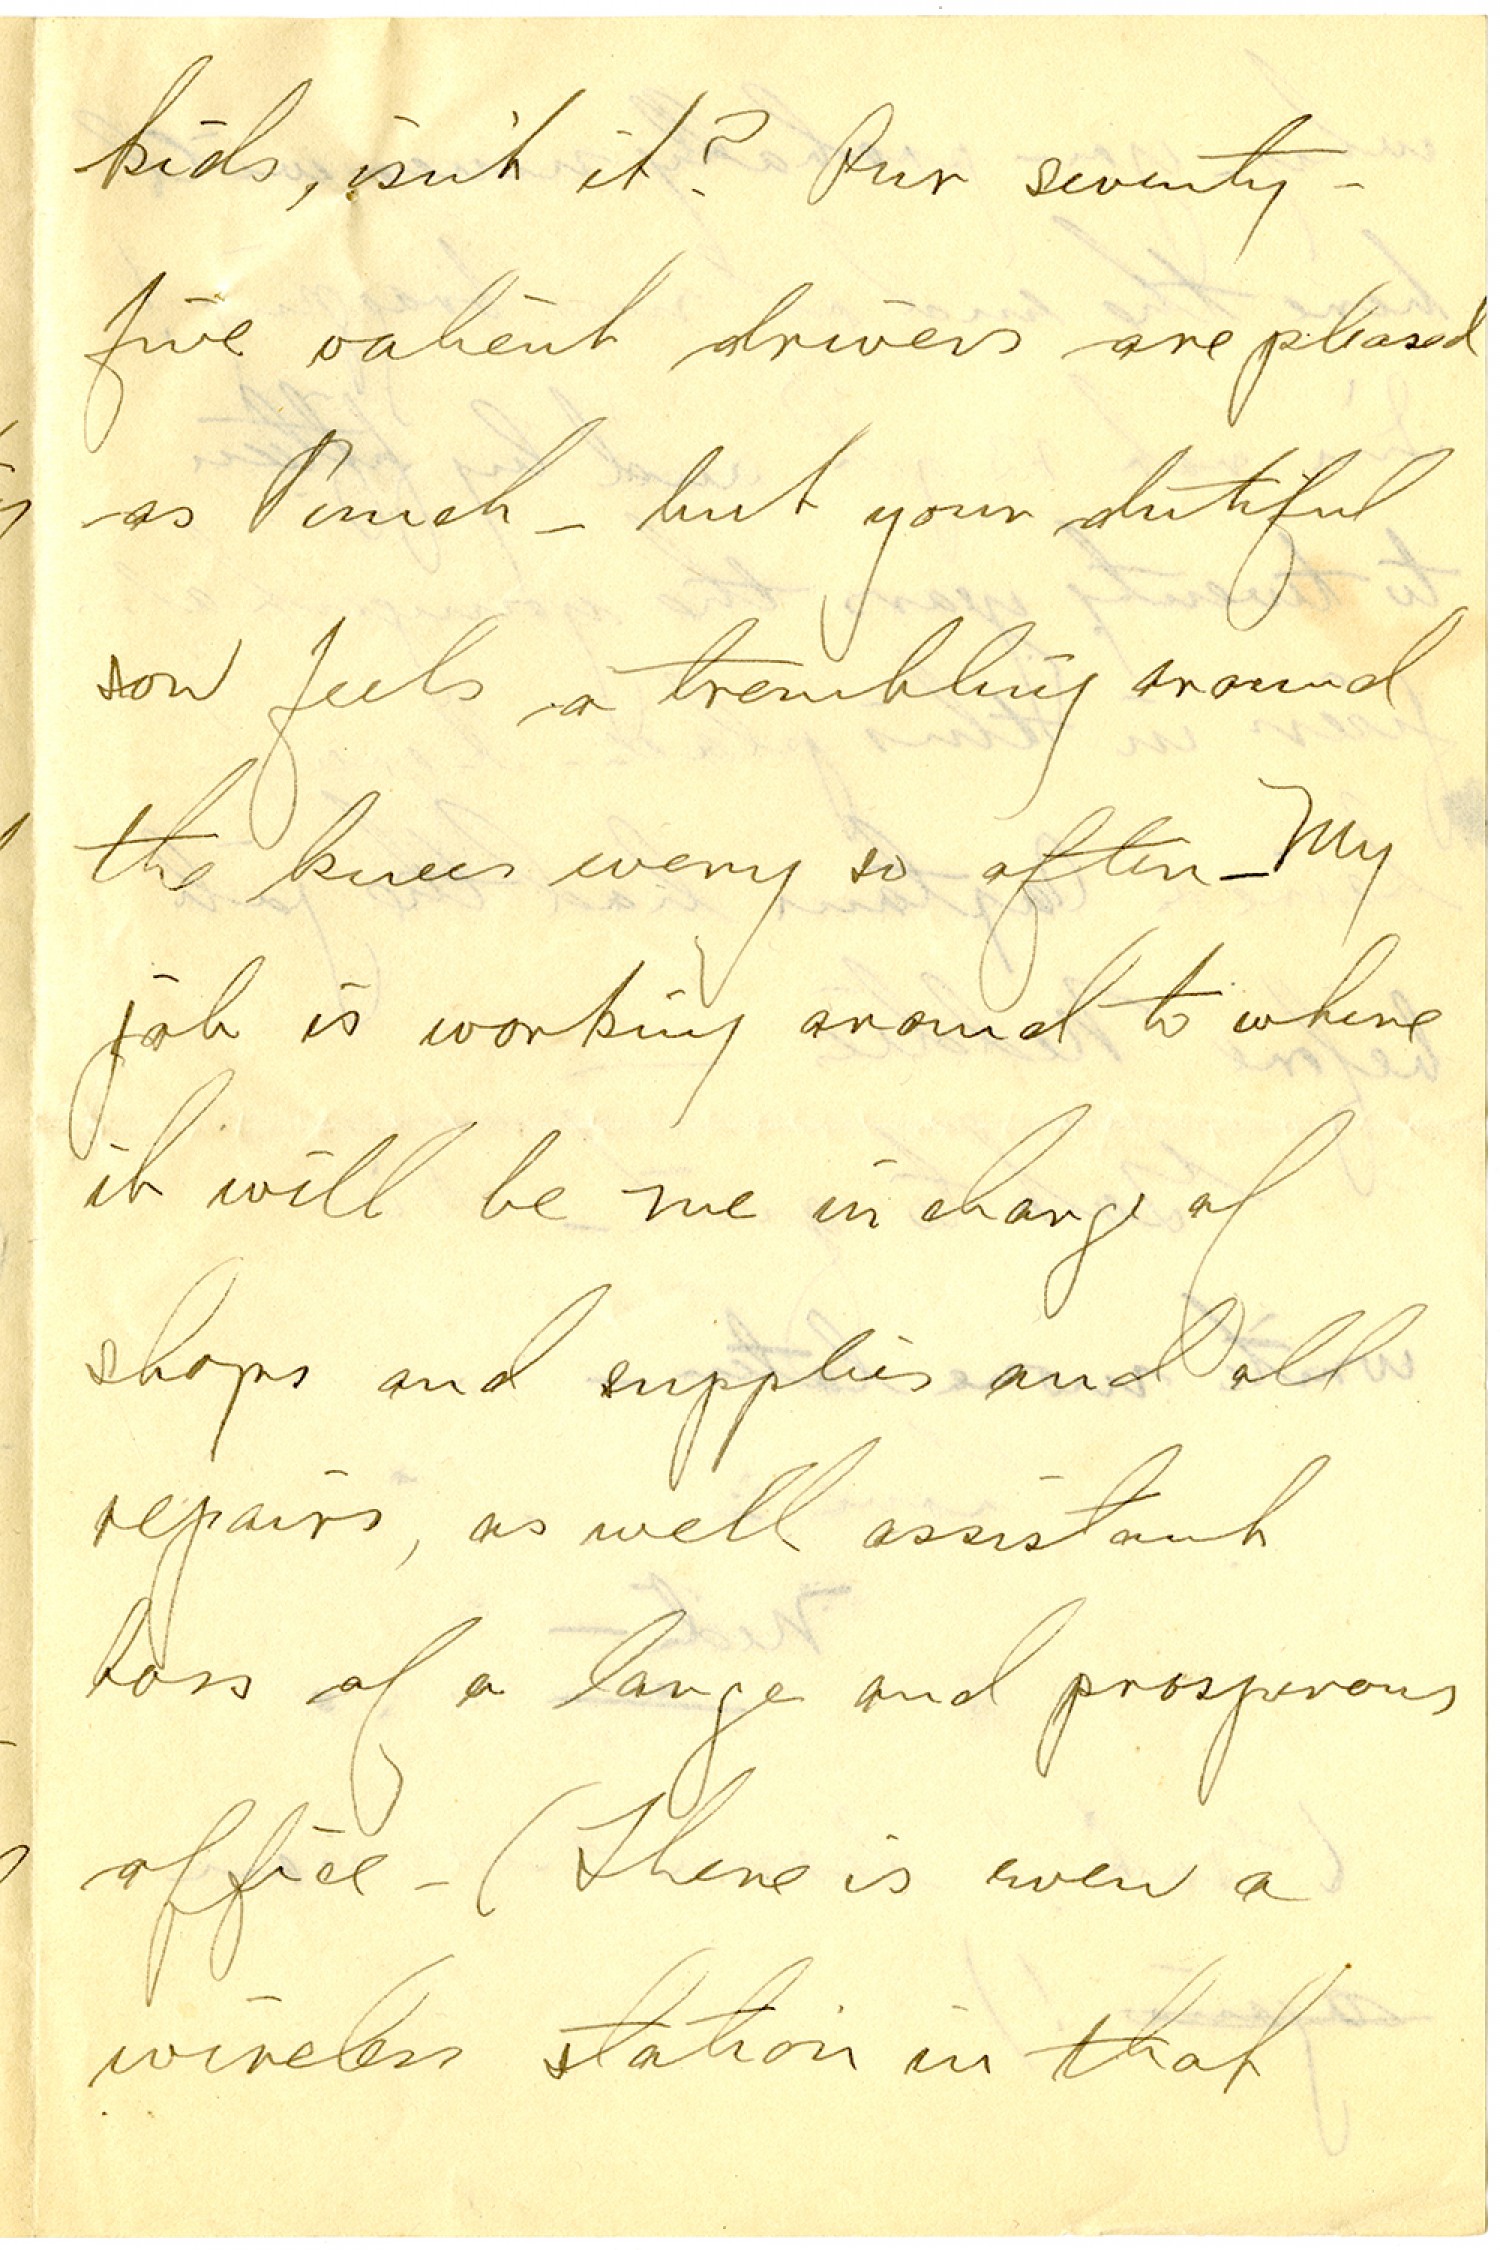 kids, isn't it? Our seventy-
five valient drivers are pleased
as Punch - but your dutiful
son feels a trembling around
the knees every so often - My
job is working around to where
it will be me in charge of
shops and supplies and all
repairs, as well assistant
boss of a large and prosperous
office - (There is even a
wireless station in that